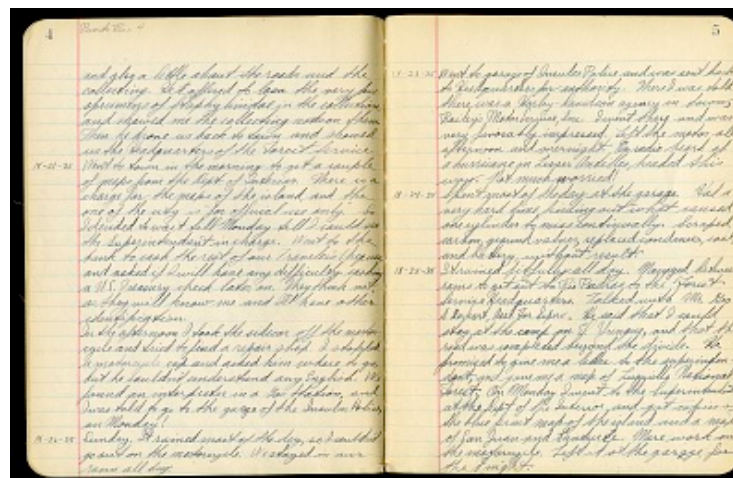 4
Puerto Rico 4
and glep a little about the roads and the
collecting. He offered to loan the very few
specimens of Staphylinidae in the collection
and showed me the collecting notes on them.
Then he drove us back to town and showed
us the headquarters of the Forest Service
Went to town in the morning to get a couple
of maps from the Dept of Interior. There is a
charge for the maps of the island and the
one of the city is for official use only. So
I decided to wait till Monday till I could see
the Superintendent in charge. Went to the
bank to cash the rest of our Travelers Cheques
and asked if I will have any difficulty cashing
a U.S. Treasury check later on. They think not
as they will know me and I'll have other
identification.
In the afternoon I took the sidecar off the motor-
cycle and tried to find a repair shop. I stopped
a motorcycle cop and asked him where to go,
but he couldn't understand any English. We
found an interpreter in a Gas Station, and
I was told to go to the garage of the Insular Police
on Monday.
Sunday. It rained most of the day, so I couldn't
go over on the motorcycle. We stayed in our
room all day.
5
Went to garage of Insular Police and was sent back
to Headquarters for authority. There I was told
there was a Harley-Davidson agency in town,
Bailey's Motor Service, Inc. I went there and was
very favorably impressed. Left the motor all
afternoon and overnight. On radio heard of
a hurricane in Lesser Antilles, headed this
way. Not much worried!
Spent most of the day at the garage. Had a
very hard time finding out what caused
one cylinder to miss continually. Scraped
carbon, ground valves, replaced condenser, coil
and battery, without result.
It rained fitfully all day. Managed between
rains to get out to Rio Piedras to the Forest
Service Headquarters. Talked with Mr. Geo
. He said that I could
stay at the camp on El Yunque, and that the
road was completed beyond the divide. He
promised to give me a letter to the superinten-
dent, and give me a map of Luquillo National
Forest. On Monday I went to the Superintendent
at the Dept of the Interior and got copies of
the blue print map of the island and a map
of San Juan and Santurce. More work on
the motorcycle. Left it at the garage for
the night.